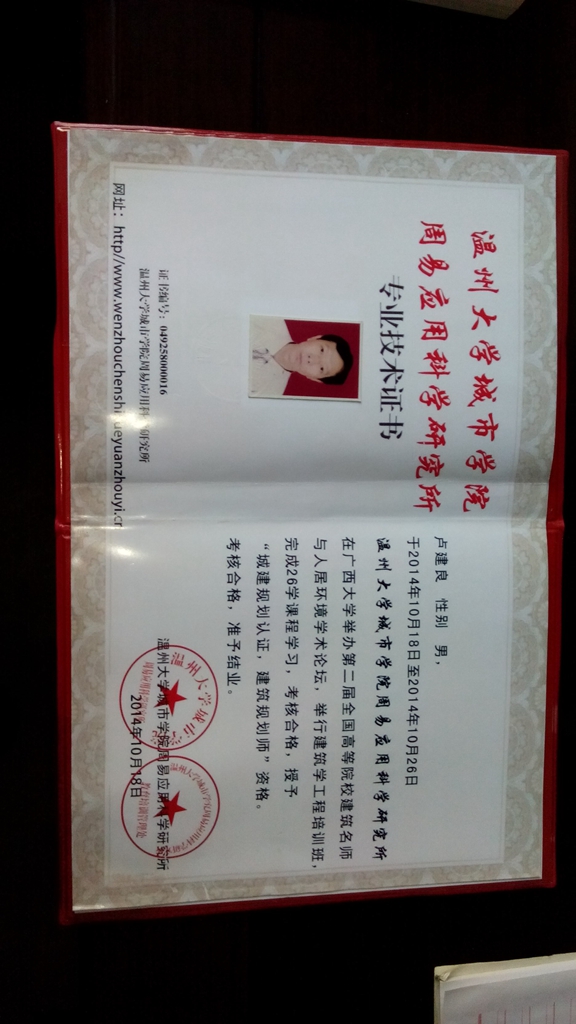 温州大学城市学院
周易应用科学研究所
专业技术证书
证书编号：049258000016
温州大学城市学院周易应用科学研究所
网址：http//www.wenzhouchenshi
卢建良 性别 男，
于2014年10月18日至2014年10月26日
温州大学城市学院周易应用科学研究所
在广西大学举办第二届全国高等院校建筑名师
与人居环境学术论坛，举行建筑学工程培训班，
完成26学课程学习，考核合格，授予
“城建规划认证，建筑规划师”资格。
考核合格，准予结业。
温州大学城市学院周易应用科学研究所
2014年10月18日
教育培训管理处